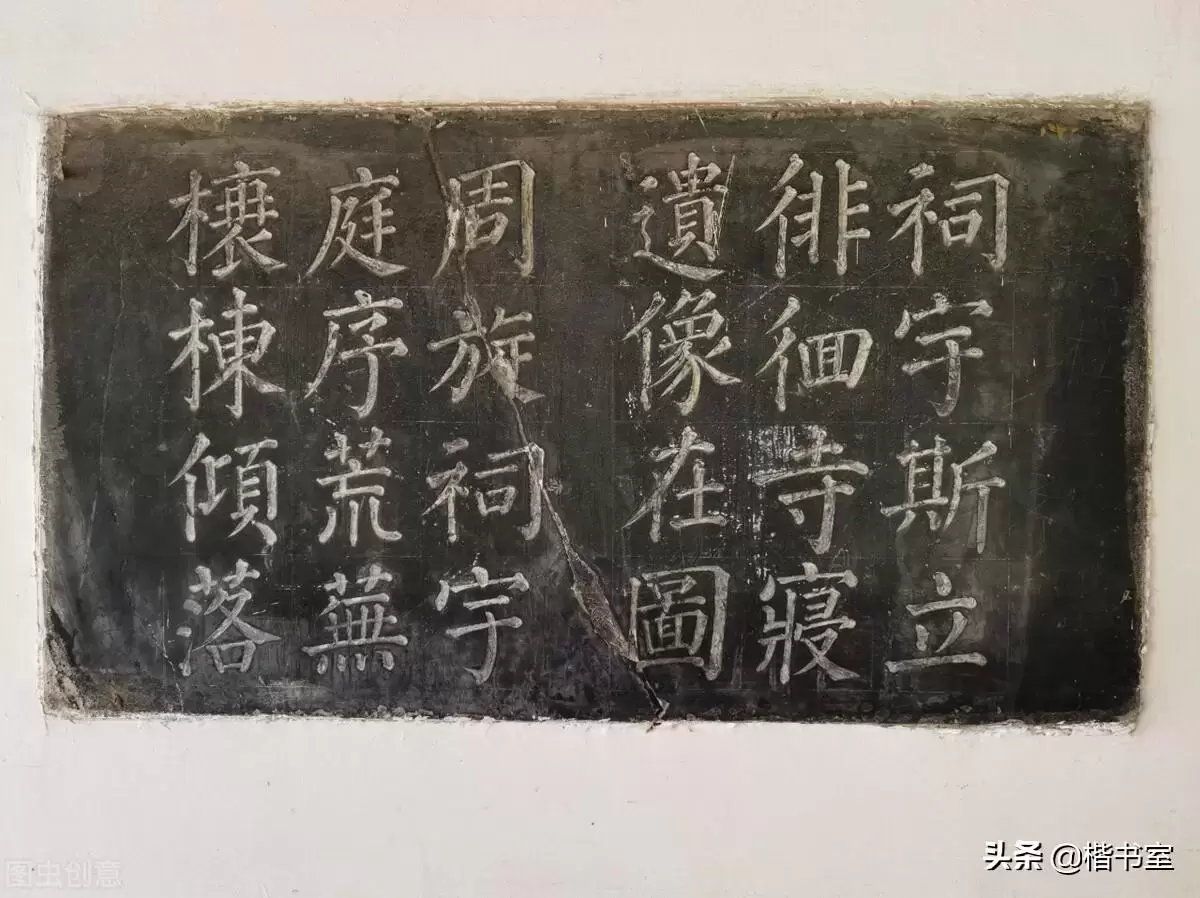 祠宇斯立
徘徊寺寢
遺像在圖
周旋祠宇
庭序荒蕪
榱棟傾落
图虫创意
头条 @楷书室